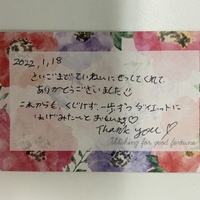 2022,1,18
さいごまでていねいにせっしてくれて、
ありがとうございました☺
これからも、くじけず、一歩ずつダイエットに
はげみたいと おもいます♡
Thank you ♡
Wishing for good fortune